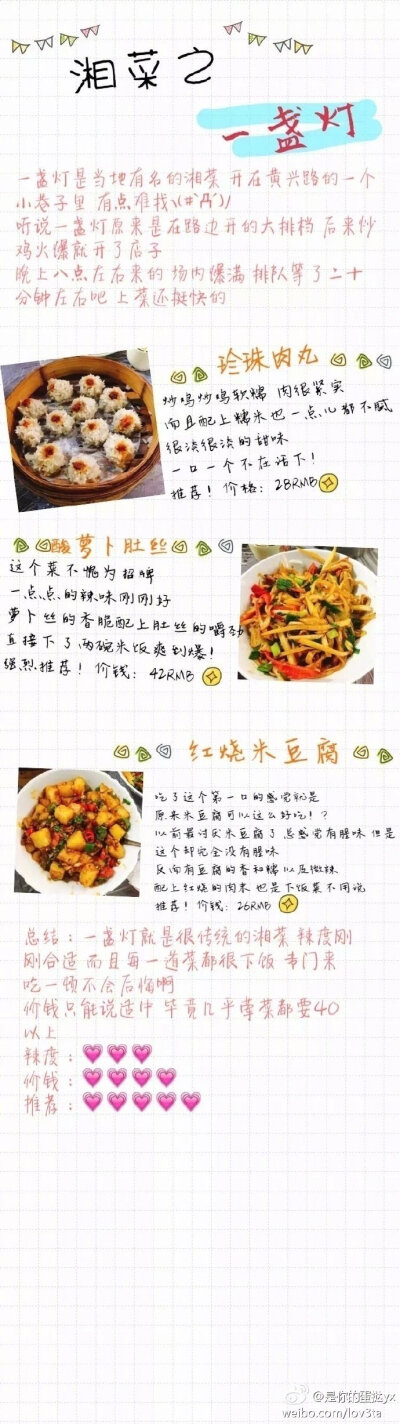 湘菜之
一盏灯
一盏灯是当地有名的湘菜 开在黄兴路的一个
小巷子里 有点难找\(#`Д´)/
听说一盏灯原来是在路边开的大排档 后来炒
鸡火爆就开了店子
晚上八点左右来的 场内爆满 排队等了二十
分钟左右吧 上菜还挺快的
珍珠肉丸
炒鸡炒鸡软糯 肉很紧实
而且配上糯米也一点儿都不腻
很淡很淡的甜味
一口一个不在话下!
推荐! 价格:28RMB
酸萝卜肚丝
这个菜不愧为招牌
一点点的辣味刚刚好
萝卜丝的香脆配上肚丝的嚼劲
直接下了两碗米饭爽到爆!
强烈推荐! 价钱:42RMB
红烧米豆腐
吃了这个第一口的感觉就是
原来米豆腐可以这么好吃!?
以前最讨厌米豆腐了 总感觉有腥味 但是
这个却完全没有腥味
反而有豆腐的香和糯以及微辣
配上红烧的肉末 也是下饭菜不用说
推荐! 价钱:26RMB
总结:一盏灯就是很传统的湘菜 辣度刚
刚合适 而且每一道菜都很下饭 专门来
吃一顿不会后悔啊
价钱只能说适中 毕竟几乎荤菜都要40
以上
辣度:
价钱:
推荐:
@是你的蛋挞yx
weibo.com/lov3ta